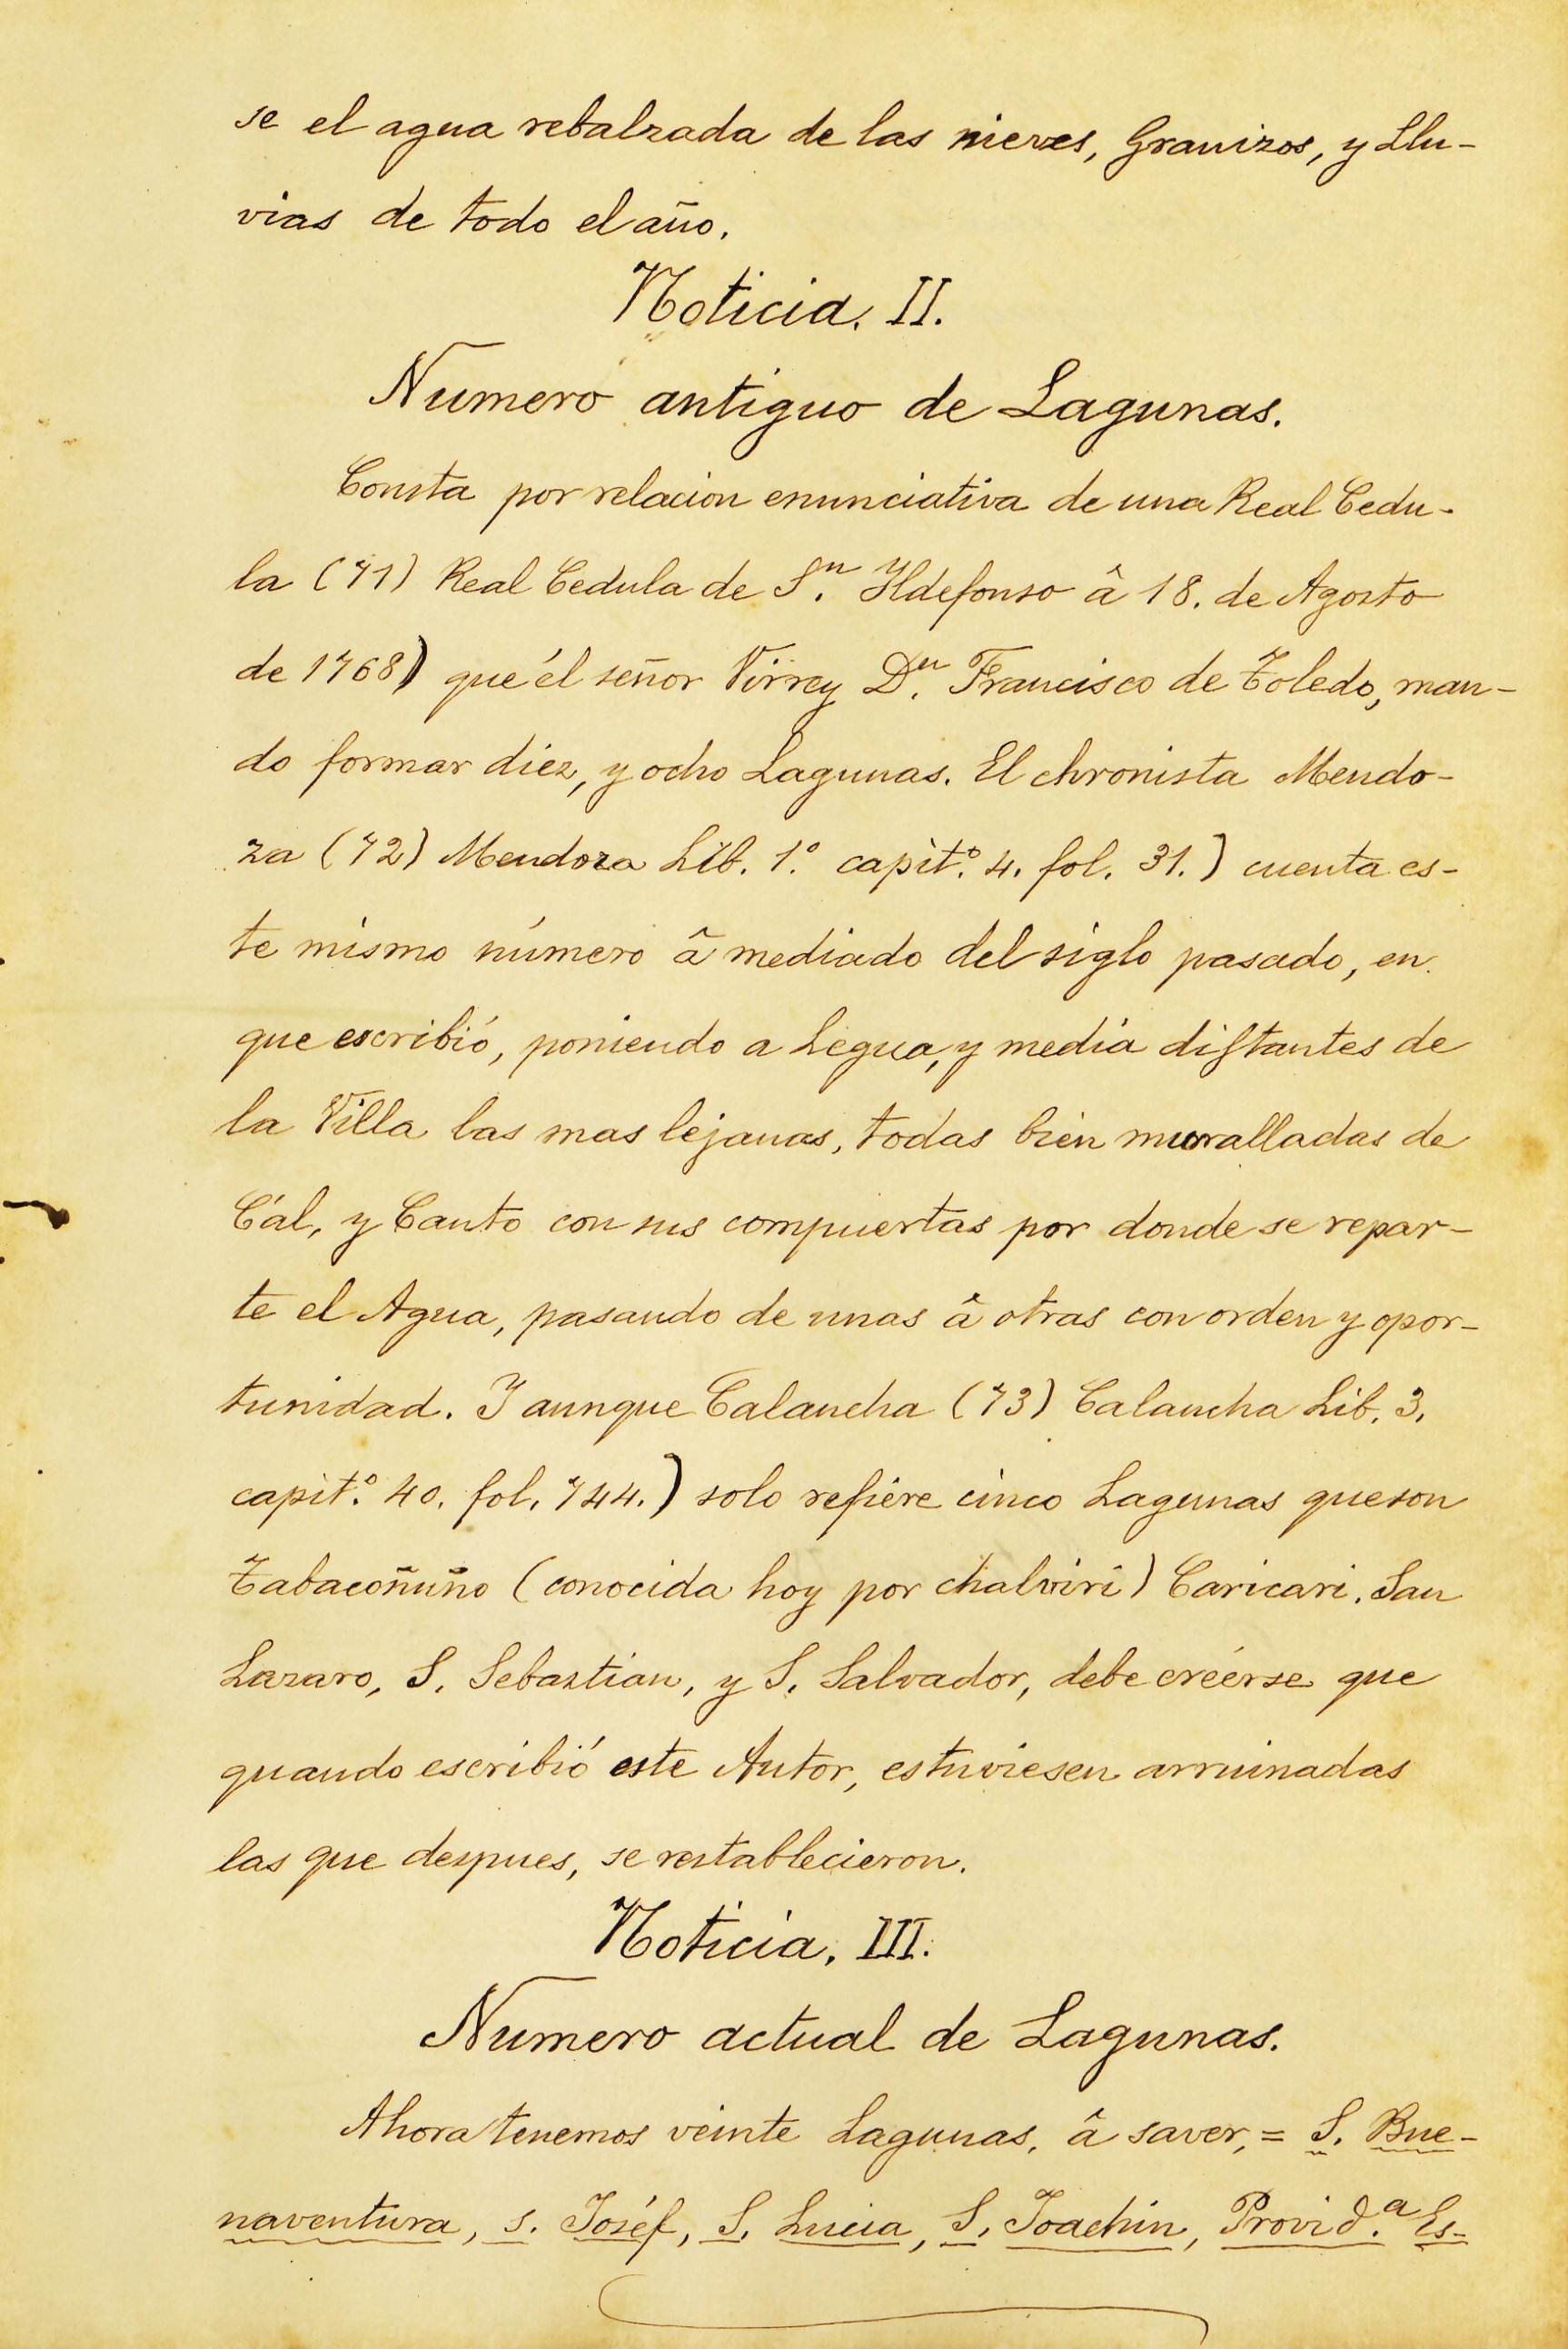 se el agua rebalzada de las nieves, Granizos, y Llu-
vias de todo el año.
Noticia. II.
Numero antiguo de Lagunas.
Consta por relacion enunciativa de una Real Cedu-
la (71) Real Cedula de Sn. Ildefonso â 18. de Agosto
de 1768) que él señor Virrey Dn. Francisco de Toledo, man-
do formar diez, y ocho Lagunas. El chronista Mendo-
za (72) Mendoza Lib. 1.º capit.º 4. fol. 31.) cuenta es-
te mismo número â mediado del siglo pasado, en
que escribió, poniendo a Legua, y media distantes de
la Villa las mas lejanas, todas bien muralladas de
Cál, y Canto con sus compuertas por donde se repar-
te el Agua, pasando de unas â otras con orden y opor-
tunidad. I aunque Calancha (73) Calancha Lib. 3,
capit.º 40. fol. 744.) solo refiere cinco Lagunas que son
Tabacoñuño (conocida hoy por chalviri) Caricari. San
Lazaro, S. Sebastian, y S. Salvador, debe creérse que
quando escribió este Autor, estuviesen arruinadas
las que despues, se restablecieron.
Noticia, III.
Numero actual de Lagunas.
Ahora tenemos veinte Lagunas, â saver, = S. Bue-
naventura, s. Joséf, S. Lucia, S. Joachin, Provid.ª Es-